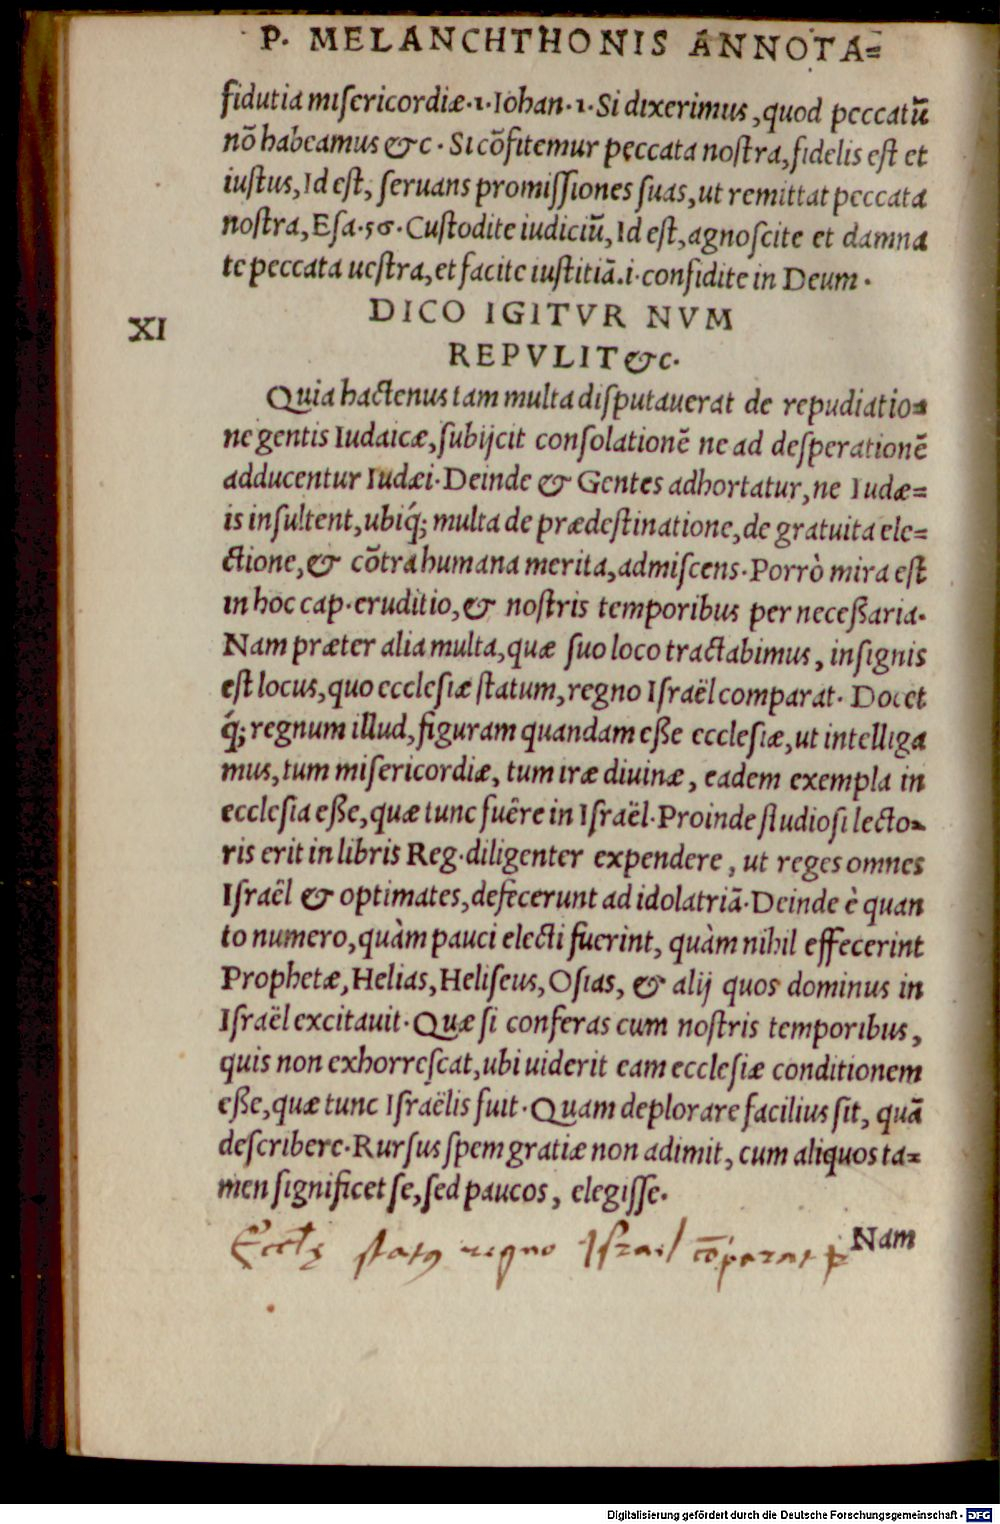 P. MELANCHTHONIS ANNOTA=
fidutia misericordiæ.1.Iohan.1.Si dixerimus, quod peccatū
nō habeamus &c. Si cōfitemur peccata nostra, fidelis est et
iustus, Id est, seruans promissiones suas, ut remittat peccata
nostra, Esa.56. Custodite iudiciū, Id est, agnoscite et damna
te peccata uestra, et facite iustitiā.i. confidite in Deum.
XI
DICO IGITVR NVM
REPVLIT &c.
Quia hactenus tam multa disputauerat de repudiatio=
ne gentis Iudaicæ, subijcit consolationē ne ad desperationē
adducentur Iudæi. Deinde & Gentes adhortatur, ne Iudæ=
is insultent, ubiq́; multa de prædestinatione, de gratuita ele=
ctione, & cōtra humana merita, admiscens. Porrò mira est
in hoc cap. eruditio, & nostris temporibus per necessaria.
Nam præter alia multa, quæ suo loco tractabimus, insignis
est locus, quo ecclesiæ statum, regno Israël comparat. Docet
q́; regnum illud, figuram quandam esse ecclesiæ, ut intelliga
mus, tum misericordiæ, tum iræ diuinæ, eadem exempla in
ecclesia esse, quæ tunc fuêre in Israël. Proinde studiosi lecto=
ris erit in libris Reg. diligenter expendere, ut reges omnes
Israël & optimates, defecerunt ad idolatriā. Deinde è quan
to numero, quàm pauci electi fuerint, quàm nihil effecerint
Prophetæ, Helias, Heliseus, Osias, & alij quos dominus in
Israël excitauit. Quæ si conferas cum nostris temporibus,
quis non exhorrescat, ubi uiderit eam ecclesiæ conditionem
esse, quæ tunc Israëlis fuit. Quam deplorare facilius sit, quā
describere. Rursus spem gratiæ non adimit, cum aliquos ta=
men significet se, sed paucos, elegisse.
Nam
statꝯ regno Israel cōparat
Digitalisierung gefördert durch die Deutsche Forschungsgemeinschaft - DFG